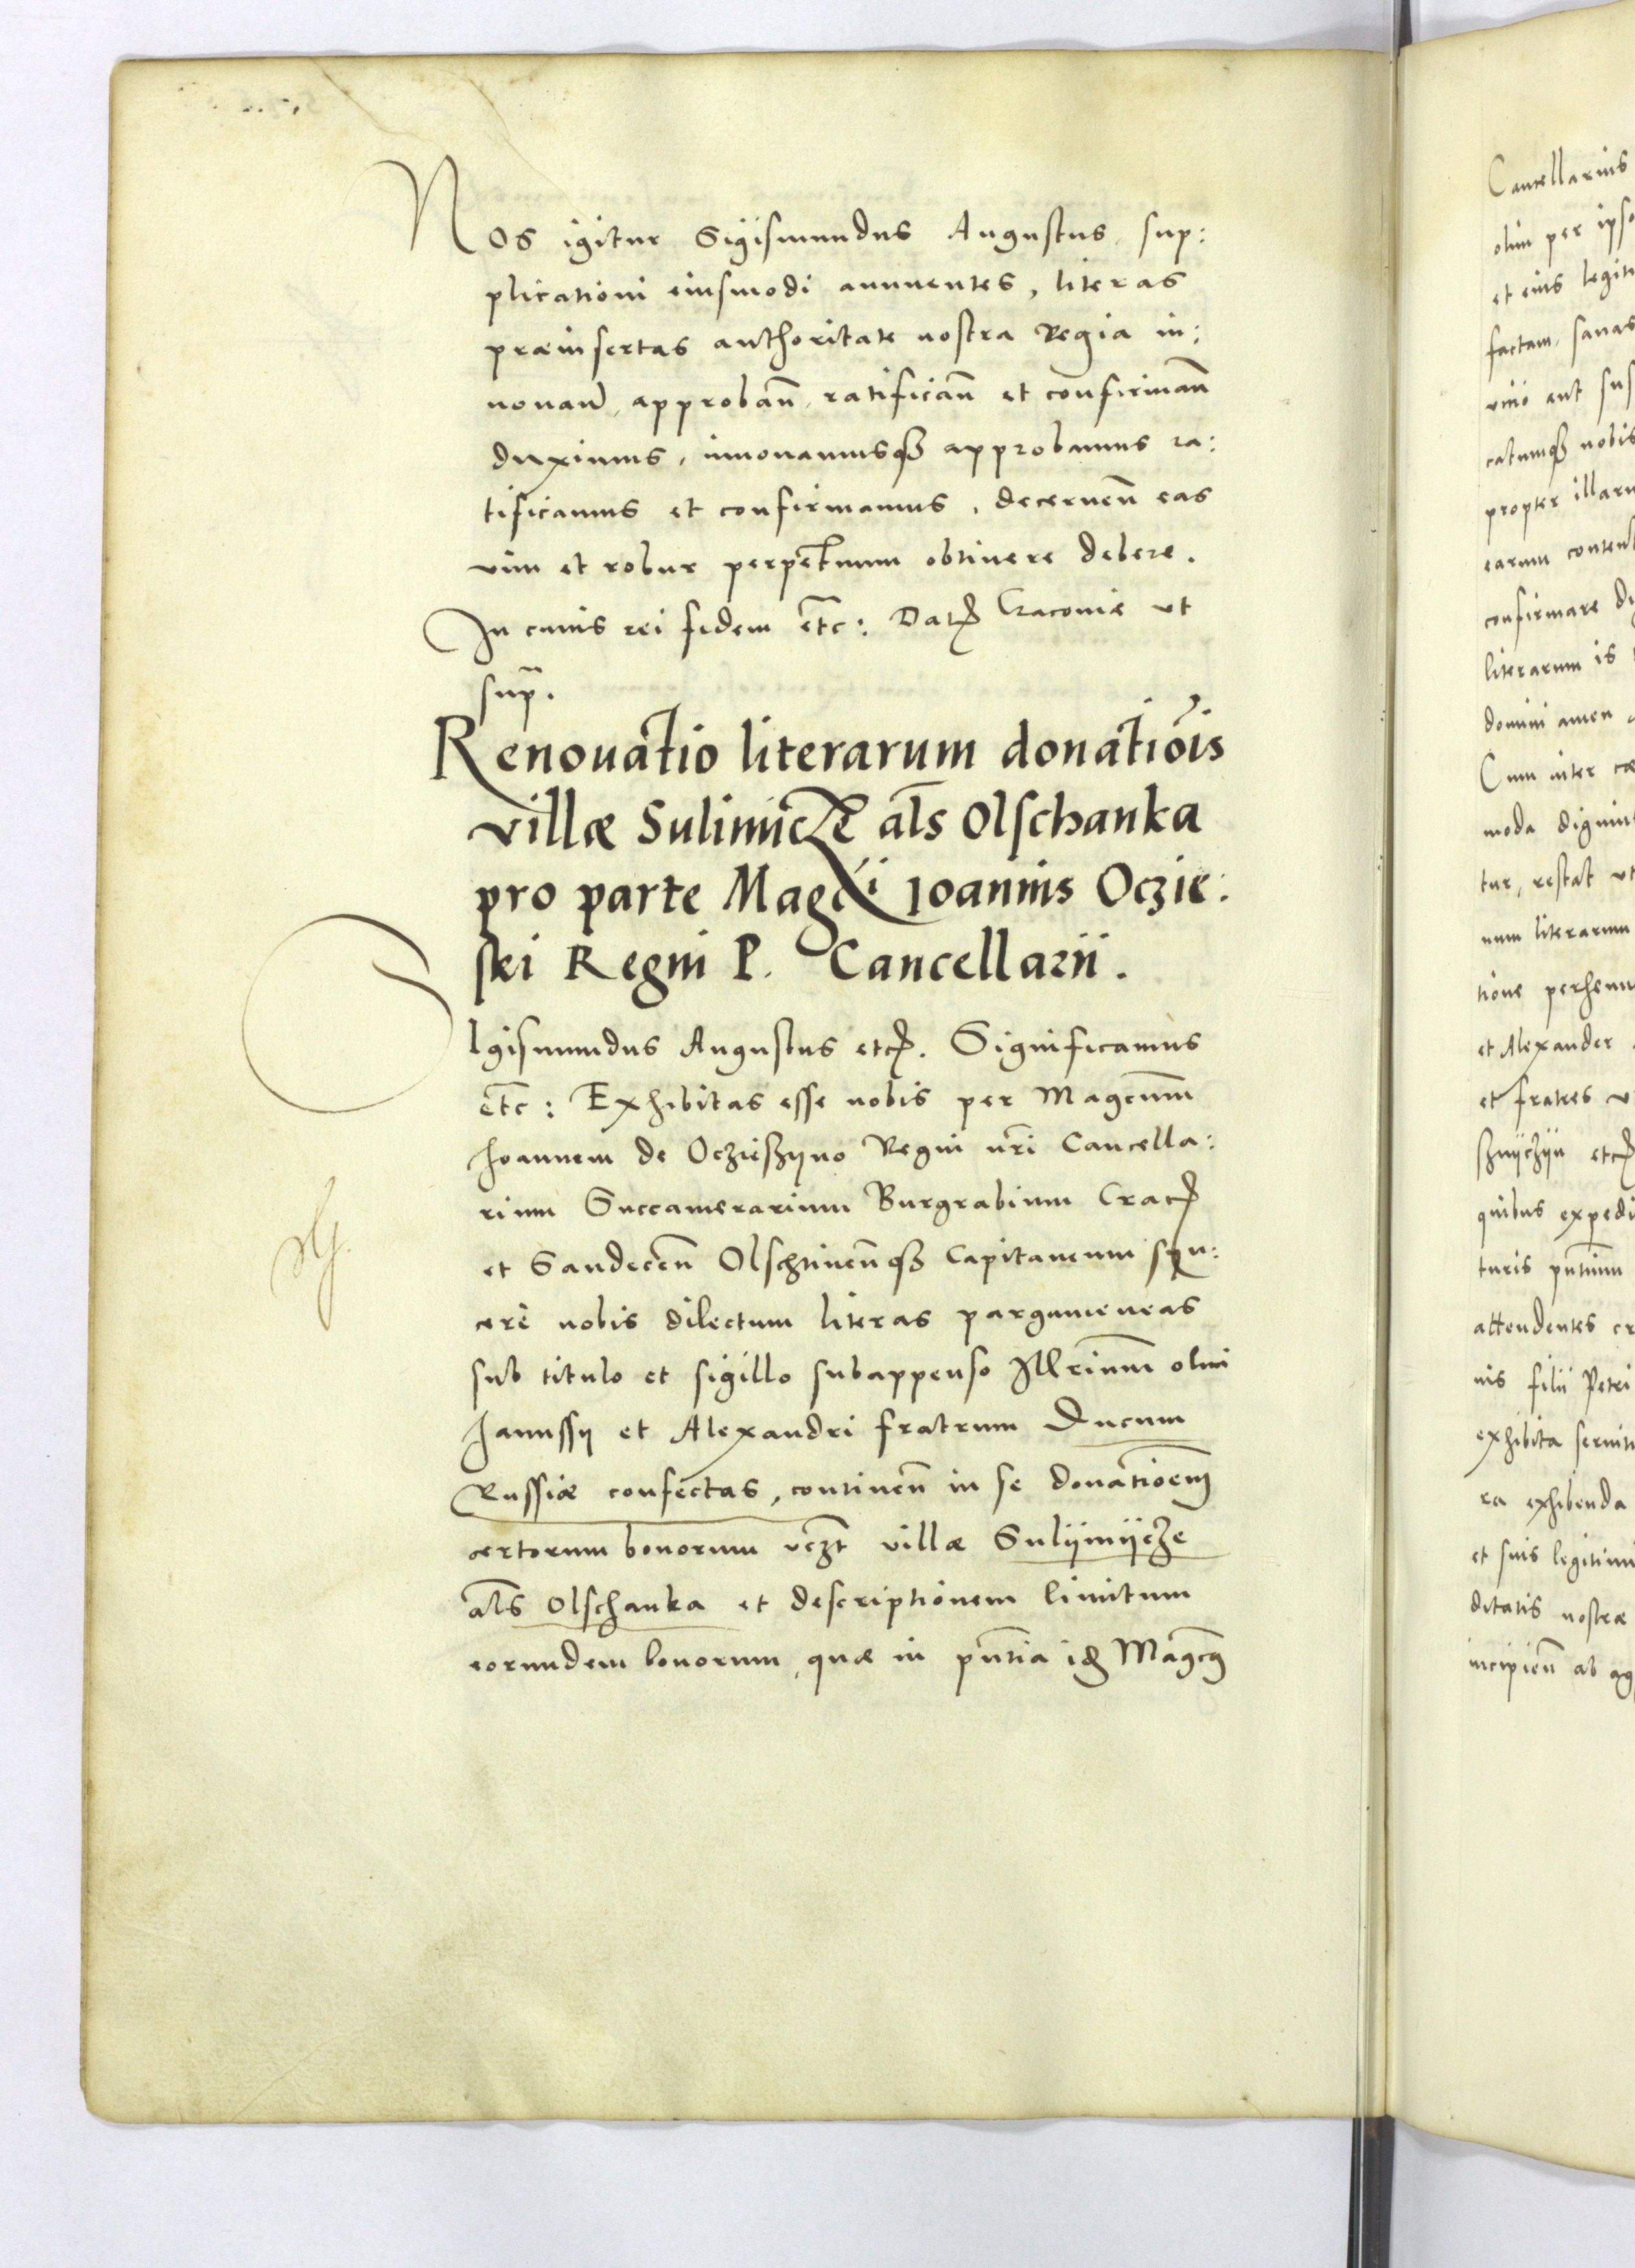 Nos igitur Sigismundus Augustus, sup:
plicationi eiusmodi annuentes, literas
præinsertas authoritate nostra Regia in:
nouand, approbañ, ratificañ et confirmañ
duximus, innouamusq3 approbamus ra:
tificamus et confirmamus, decerneñ eas
vim et robur perpetuum obtinere debere.
In cuius rei fidem etc: Dat Cracouiæ ut
sup̃.
Renouatio literarum donatiõis
villæ Sulimicze al̃s Olschanka
pro parte Magci Ioannis Oczie:
ski Regni P. Cancellarii.
Sigismundus Augustus etc. Significamus
etc: Exhibitas esse nobis per Magcum
Ioannem de Oczieszyno Regni nr̃i Cancella:
rium Succamerarium Burgrabium Crac
et Sandeceñ Olschtineñq3 Capitaneum syn:
cere nobis dilectum literas pargameneas
sub titulo et sigillo subappenso Illrium olim
Janussy et Alexandri fratrum Ducum
Russiæ confectas, contineñ in se donatioem
certorum bonorum vczt villæ Sulymycze
al̃s Olschanka et descriptionem limitum
eorundem bonorum, quæ in pñtia id Magcus
Cancellarius
olim per ipso
et eius legiti
factam, sanas
vitio aut sus
catumq3 nobis
propter illaru
earum content
confirmare di
literarum is
domini amen
Cum inter cæ
moda dignium
tur, restat ut
num literarum
tione perhenn
et Alexander
et fratres
etc
quibus expedi
turis pñtium
attendentes
nis filii Petri
exhibita seruiti
ra exhibenda
et suis legitimi
ditatis nostræ
incipieñ ab ag